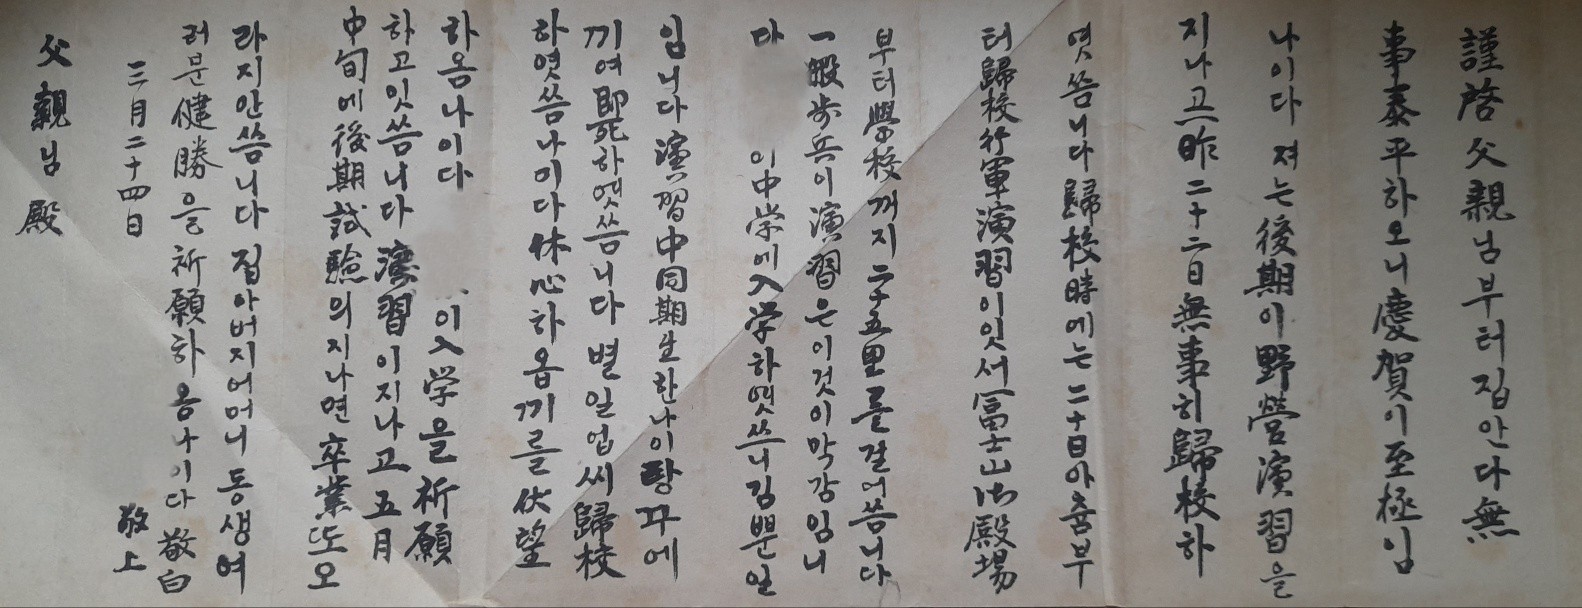 謹啓父親님부터집안다無
事泰平하오니慶賀이至極임
나이다 져는後期이野營演習을
지나고昨二十二日無事히歸校하
엿씀니다歸校時에는二十日아춤부
터歸校行軍演習이잇서富士山御殿場
부터學校까지二十五里를걸어씀니다
一般步兵이演習은이것이막강임니
다 이中学에入学하엿쓰니김뿐일
임니다演習中同期生한나이탕꾸에
끼여即死하엿씀니다별일업씨歸校
하엿씀나이다休心하옵끼를伏望
하옴나이다 이入学을祈願
하고잇씀니다演習이지나고五月
中旬에後期試驗의지나면卒業또오
라지안씀니다집아버지어머니동생여
러분健勝을祈願하옴나이다敬白
三月二十四日 敬上
父親님殿